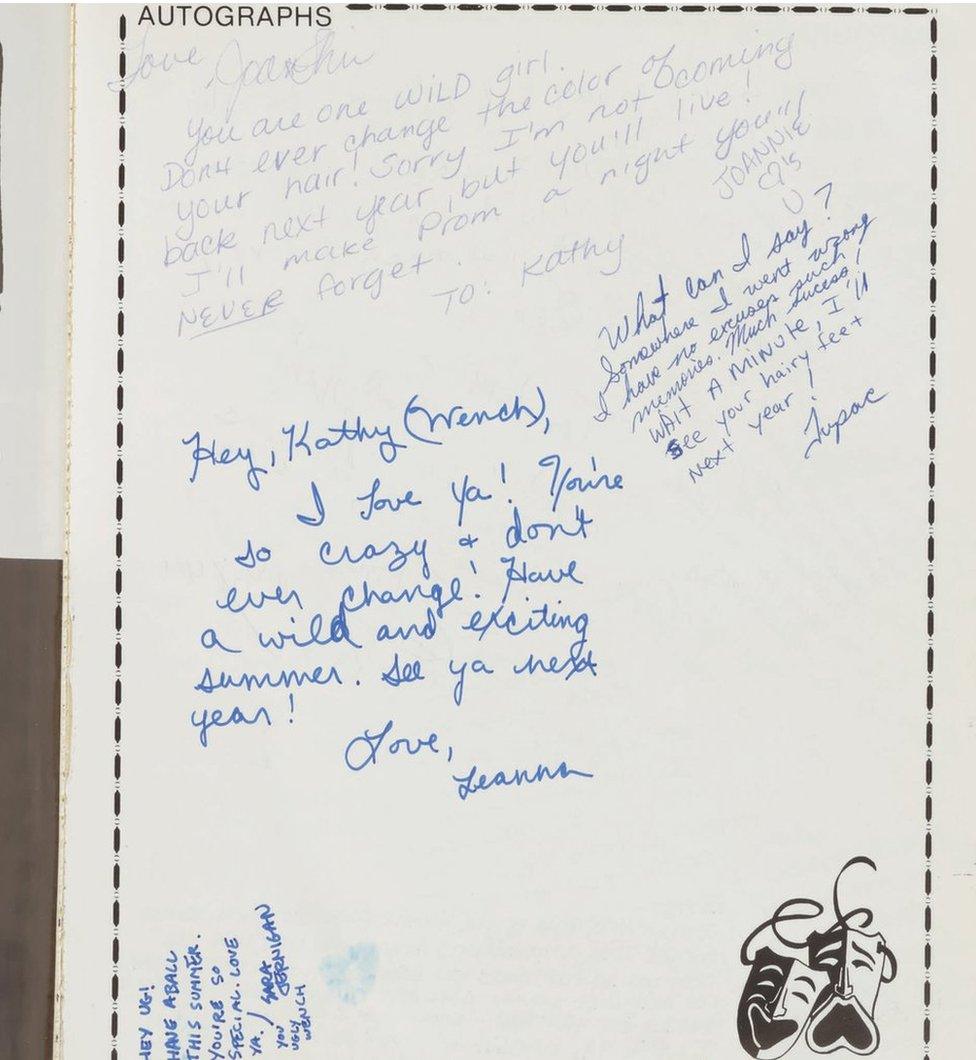 AUTOGRAPHS
Love
You are one WILD girl.
Don't ever change the color of
your hair! Sorry I'm not coming
back next year, but you'll live!
I'll make Prom a night you'll
NEVER forget.
TO: Kathy
JOANNIE
U
What can I say?
Somewhere I went wrong
I have no excuses such
memories. Much Sucess!
WAIT A MINUTE, I'll
see your hairy feet
next year!
Tupac
Hey, Kathy (Wench),
I love ya! You're
so crazy & don't
ever change! Have
a wild and exciting
summer. See ya next
year!
Love,
Leanna
HEY UG!
HAVE A BALL
THIS SUMMER.
YOU'RE SO
SPECIAL. LOVE
YA. / SARA
JERNIGAN
YOU
UGLY
WENCH